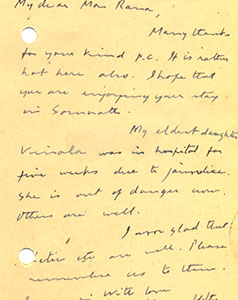 My dear Man Rana,
Many thanks
for your kind p.c. It is rather
hot here also. I hope that
you are enjoying your stay
in Somnath.
My eldest daughter
Vimala was in hospital for
five weeks due to jaundice.
She is out of danger now.
Others are well.
I am glad that
etc are well. Please
remember us to them.
With love